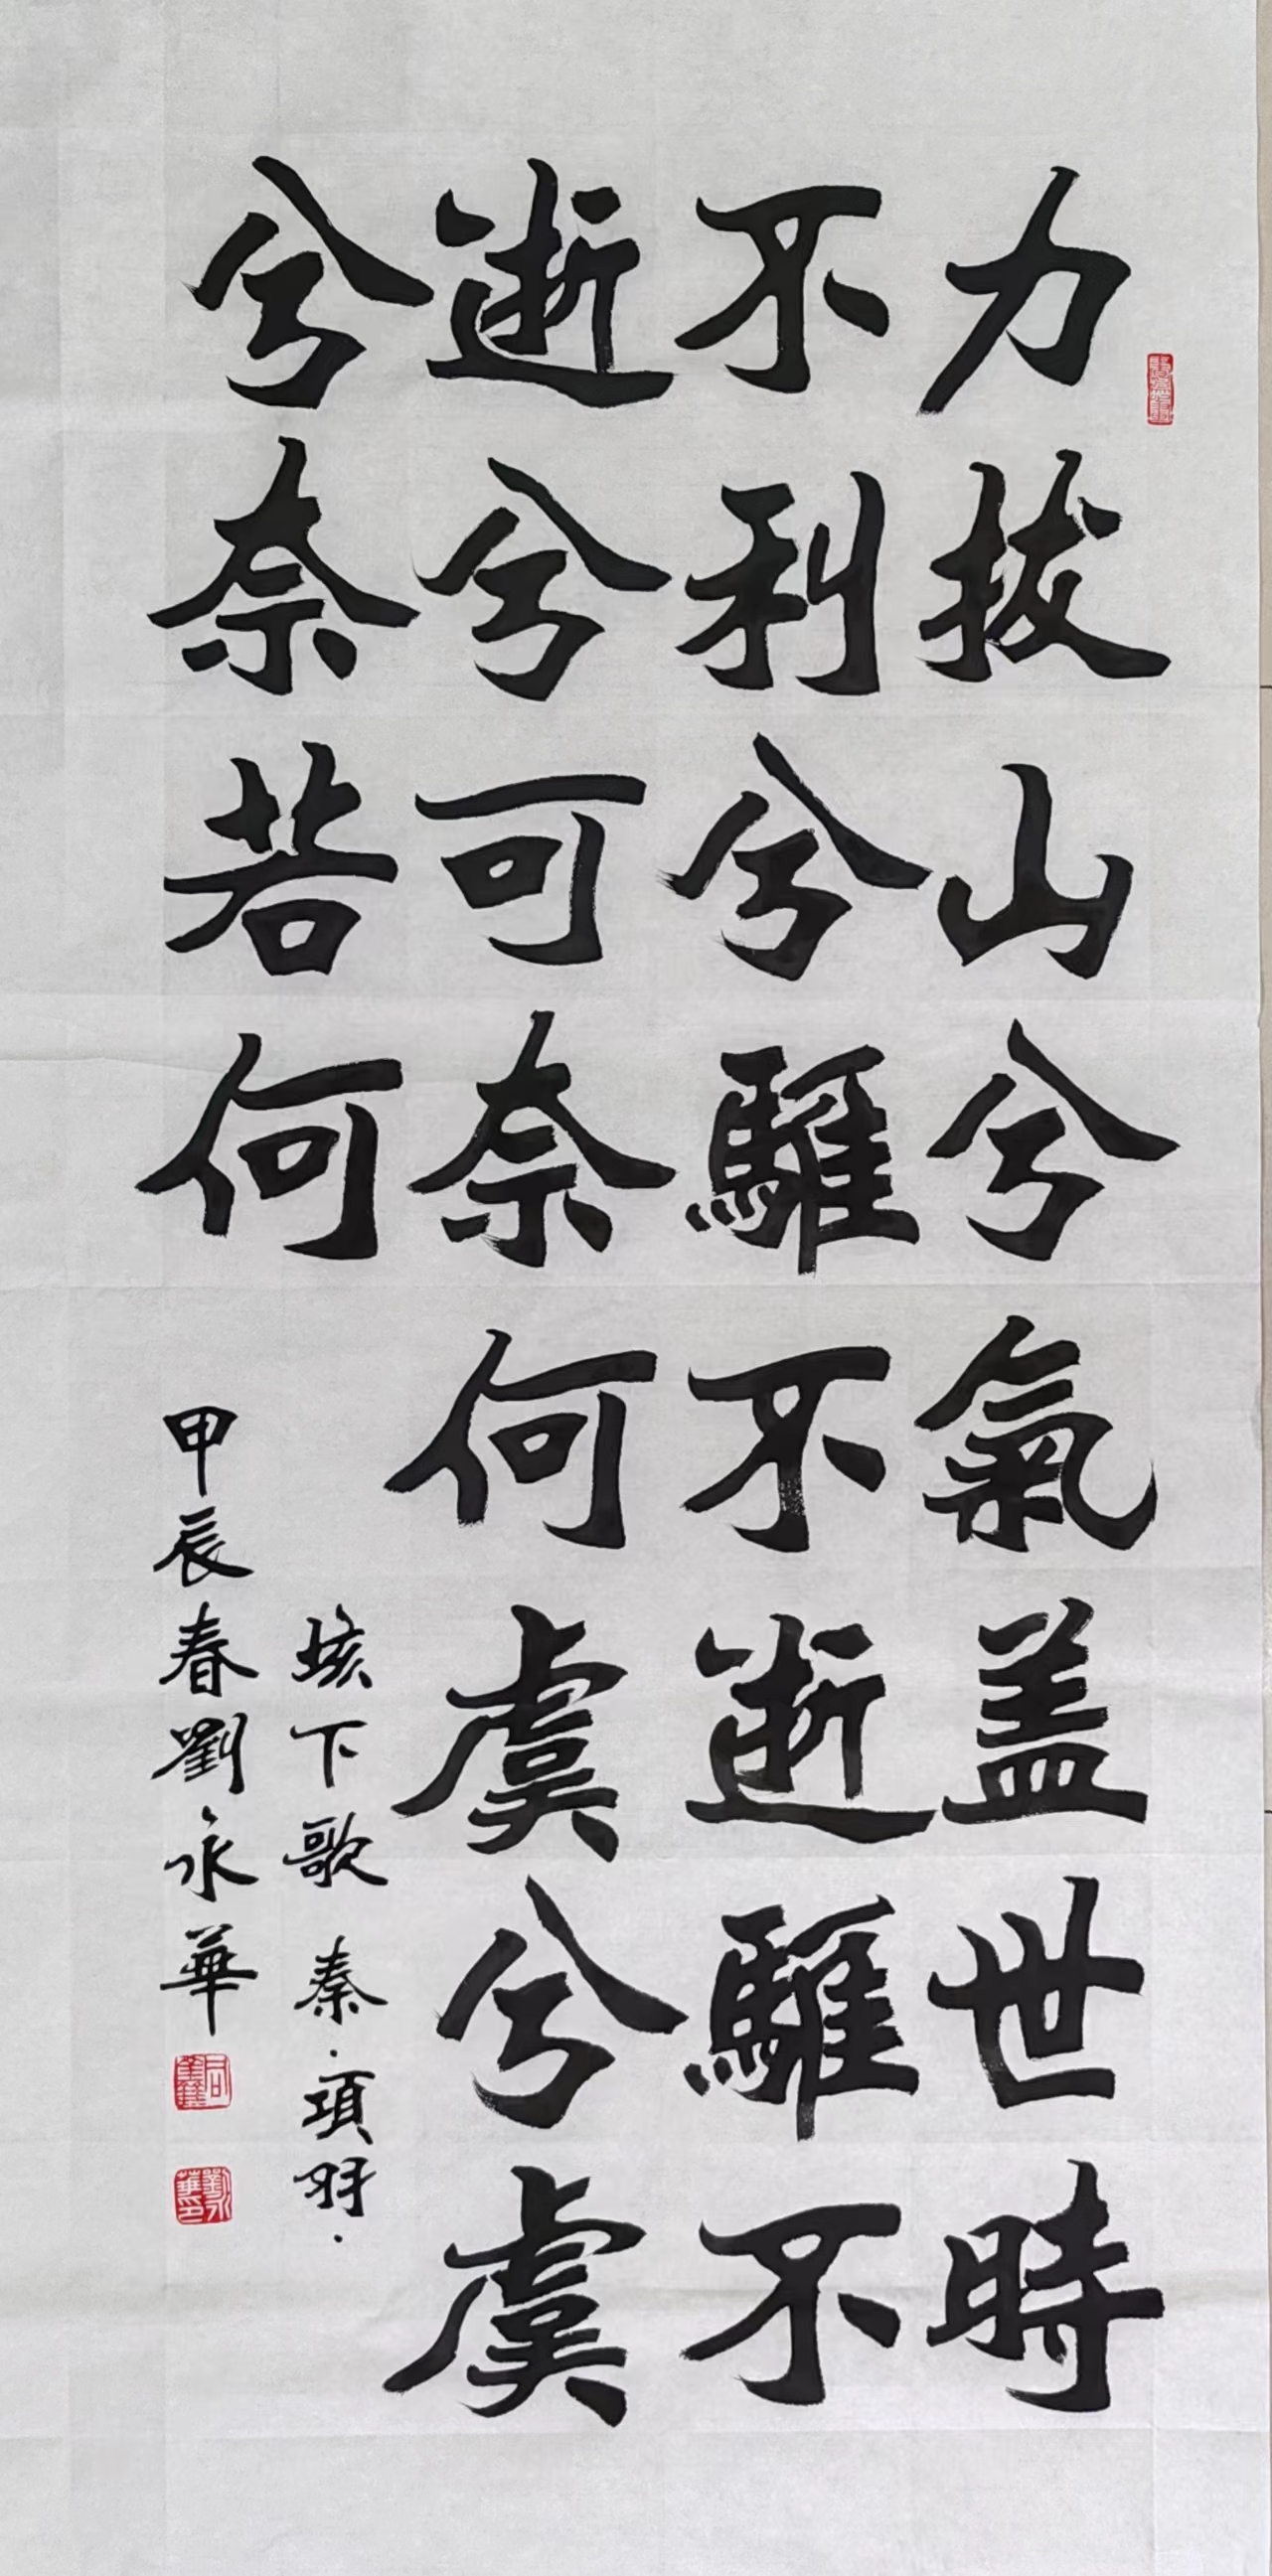 力拔山兮氣盖世時
不利兮騅不逝騅不
逝兮可奈何虞兮虞
兮奈若何
垓下歌 秦·項羽·
甲辰春劉永華